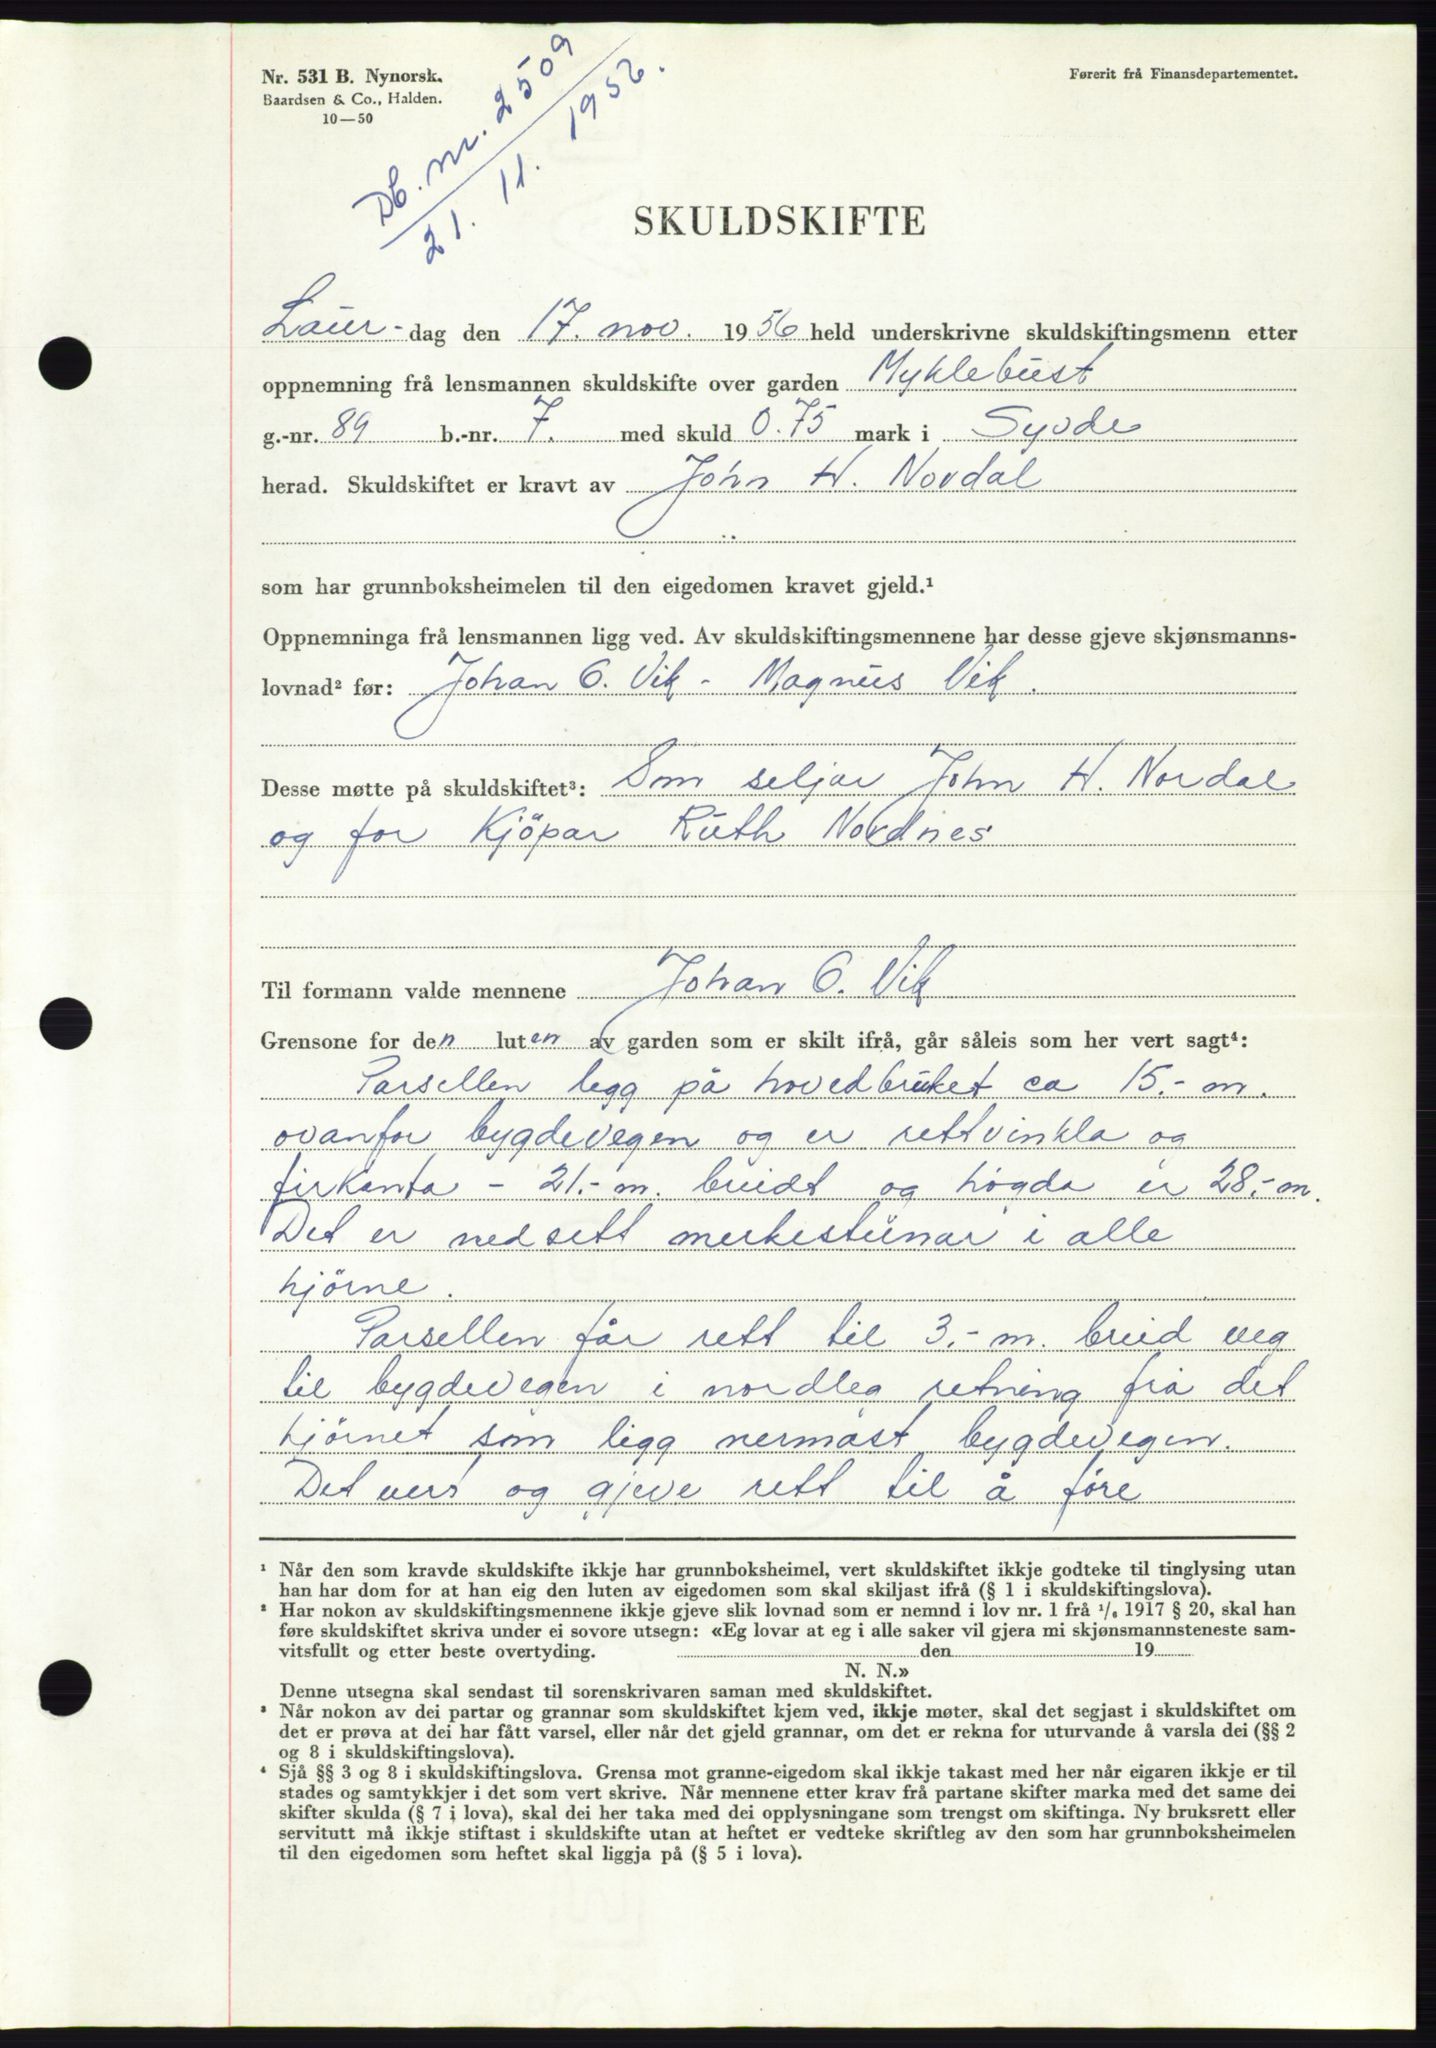 Nr. 531 B. Nynorsk.
Baardsen & Co., Halden.
10—50
Førerit frå Finansdepartementet.
Db. nr. 2509
21. 11. 1956.
SKULDSKIFTE
Laur-dag den 17. nov. 1956 held underskrivne skuldskiftingsmenn etter
oppnemning frå lensmannen skuldskifte over garden Myklebust
g.-nr. 89 b.-nr. 7. med skuld 0.75 mark i Syvde
herad. Skuldskiftet er kravt av John H. Nordal
som har grunnboksheimelen til den eigedomen kravet gjeld.¹
Oppnemninga frå lensmannen ligg ved. Av skuldskiftingsmennene har desse gjeve skjønsmanns-
lovnad² før: Johan O. Vik - Magnus Vik.
Desse møtte på skuldskiftet³: Som seljar John H. Nordal
og for Kjöpar Ruth Nordnes
Til formann valde mennene Johan O. Vik
Grensone for den luten av garden som er skilt ifrå, går såleis som her vert sagt⁴:
Parsellen ligg på hovedbruket ca 15.- m.
ovanfor bygdevegen og er rettvinkla og
firkanta - 21.- m. breidt og högda er 28.- m.
Det er nedsett merkesteinar i alle
hjörne.
Parsellen får rett til 3.- m. breid veg
til bygdevegen i nordleg retning frå det
hjörnet som ligg nermast bygdevegen.
Det vert og gjeve rett til å före
¹ Når den som kravde skuldskifte ikkje har grunnboksheimel, vert skuldskiftet ikkje godteke til tinglysing utan
han har dom for at han eig den luten av eigedomen som skal skiljast ifrå (§ 1 i skuldskiftingslova).
² Har nokon av skuldskiftingsmennene ikkje gjeve slik lovnad som er nemnd i lov nr. 1 frå ¹/₆ 1917 § 20, skal han
føre skuldskiftet skriva under ei sovore utsegn: «Eg lovar at eg i alle saker vil gjera mi skjønsmannsteneste sam-
vitsfullt og etter beste overtyding. den 19
N. N.»
Denne utsegna skal sendast til sorenskrivaren saman med skuldskiftet.
³ Når nokon av dei partar og grannar som skuldskiftet kjem ved, ikkje møter, skal det segjast i skuldskiftet om
det er prøva at dei har fått varsel, eller når det gjeld grannar, om det er rekna for uturvande å varsla dei (§§ 2
og 8 i skuldskiftingslova).
⁴ Sjå §§ 3 og 8 i skuldskiftingslova. Grensa mot granne-eigedom skal ikkje takast med her når eigaren ikkje er til
stades og samtykkjer i det som vert skrive. Når mennene etter krav frå partane skifter marka med det same dei
skifter skulda (§ 7 i lova), skal dei her taka med dei opplysningane som trengst om skiftinga. Ny bruksrett eller
servitutt må ikkje stiftast i skuldskifte utan at heftet er vedteke skriftleg av den som har grunnboksheimelen
til den eigedomen som heftet skal liggja på (§ 5 i lova).